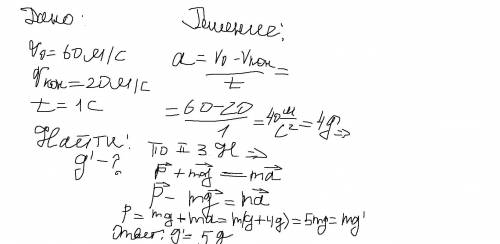 Дано:
V₀ = 60 м/с
Vкон = 20 м/с
t = 1 с
Найти:
g' - ?
Решение:
a = (V₀ - Vкон)/t =
= (60 - 20)/1 = 40 м/с² = 4g ⇒
По II З Н ⇒
P⃗ + mg⃗ = ma⃗
P⃗ - mg⃗ = ma⃗
P = mg + ma = m(g + 4g) = 5mg = mg'
Ответ: g' = 5g